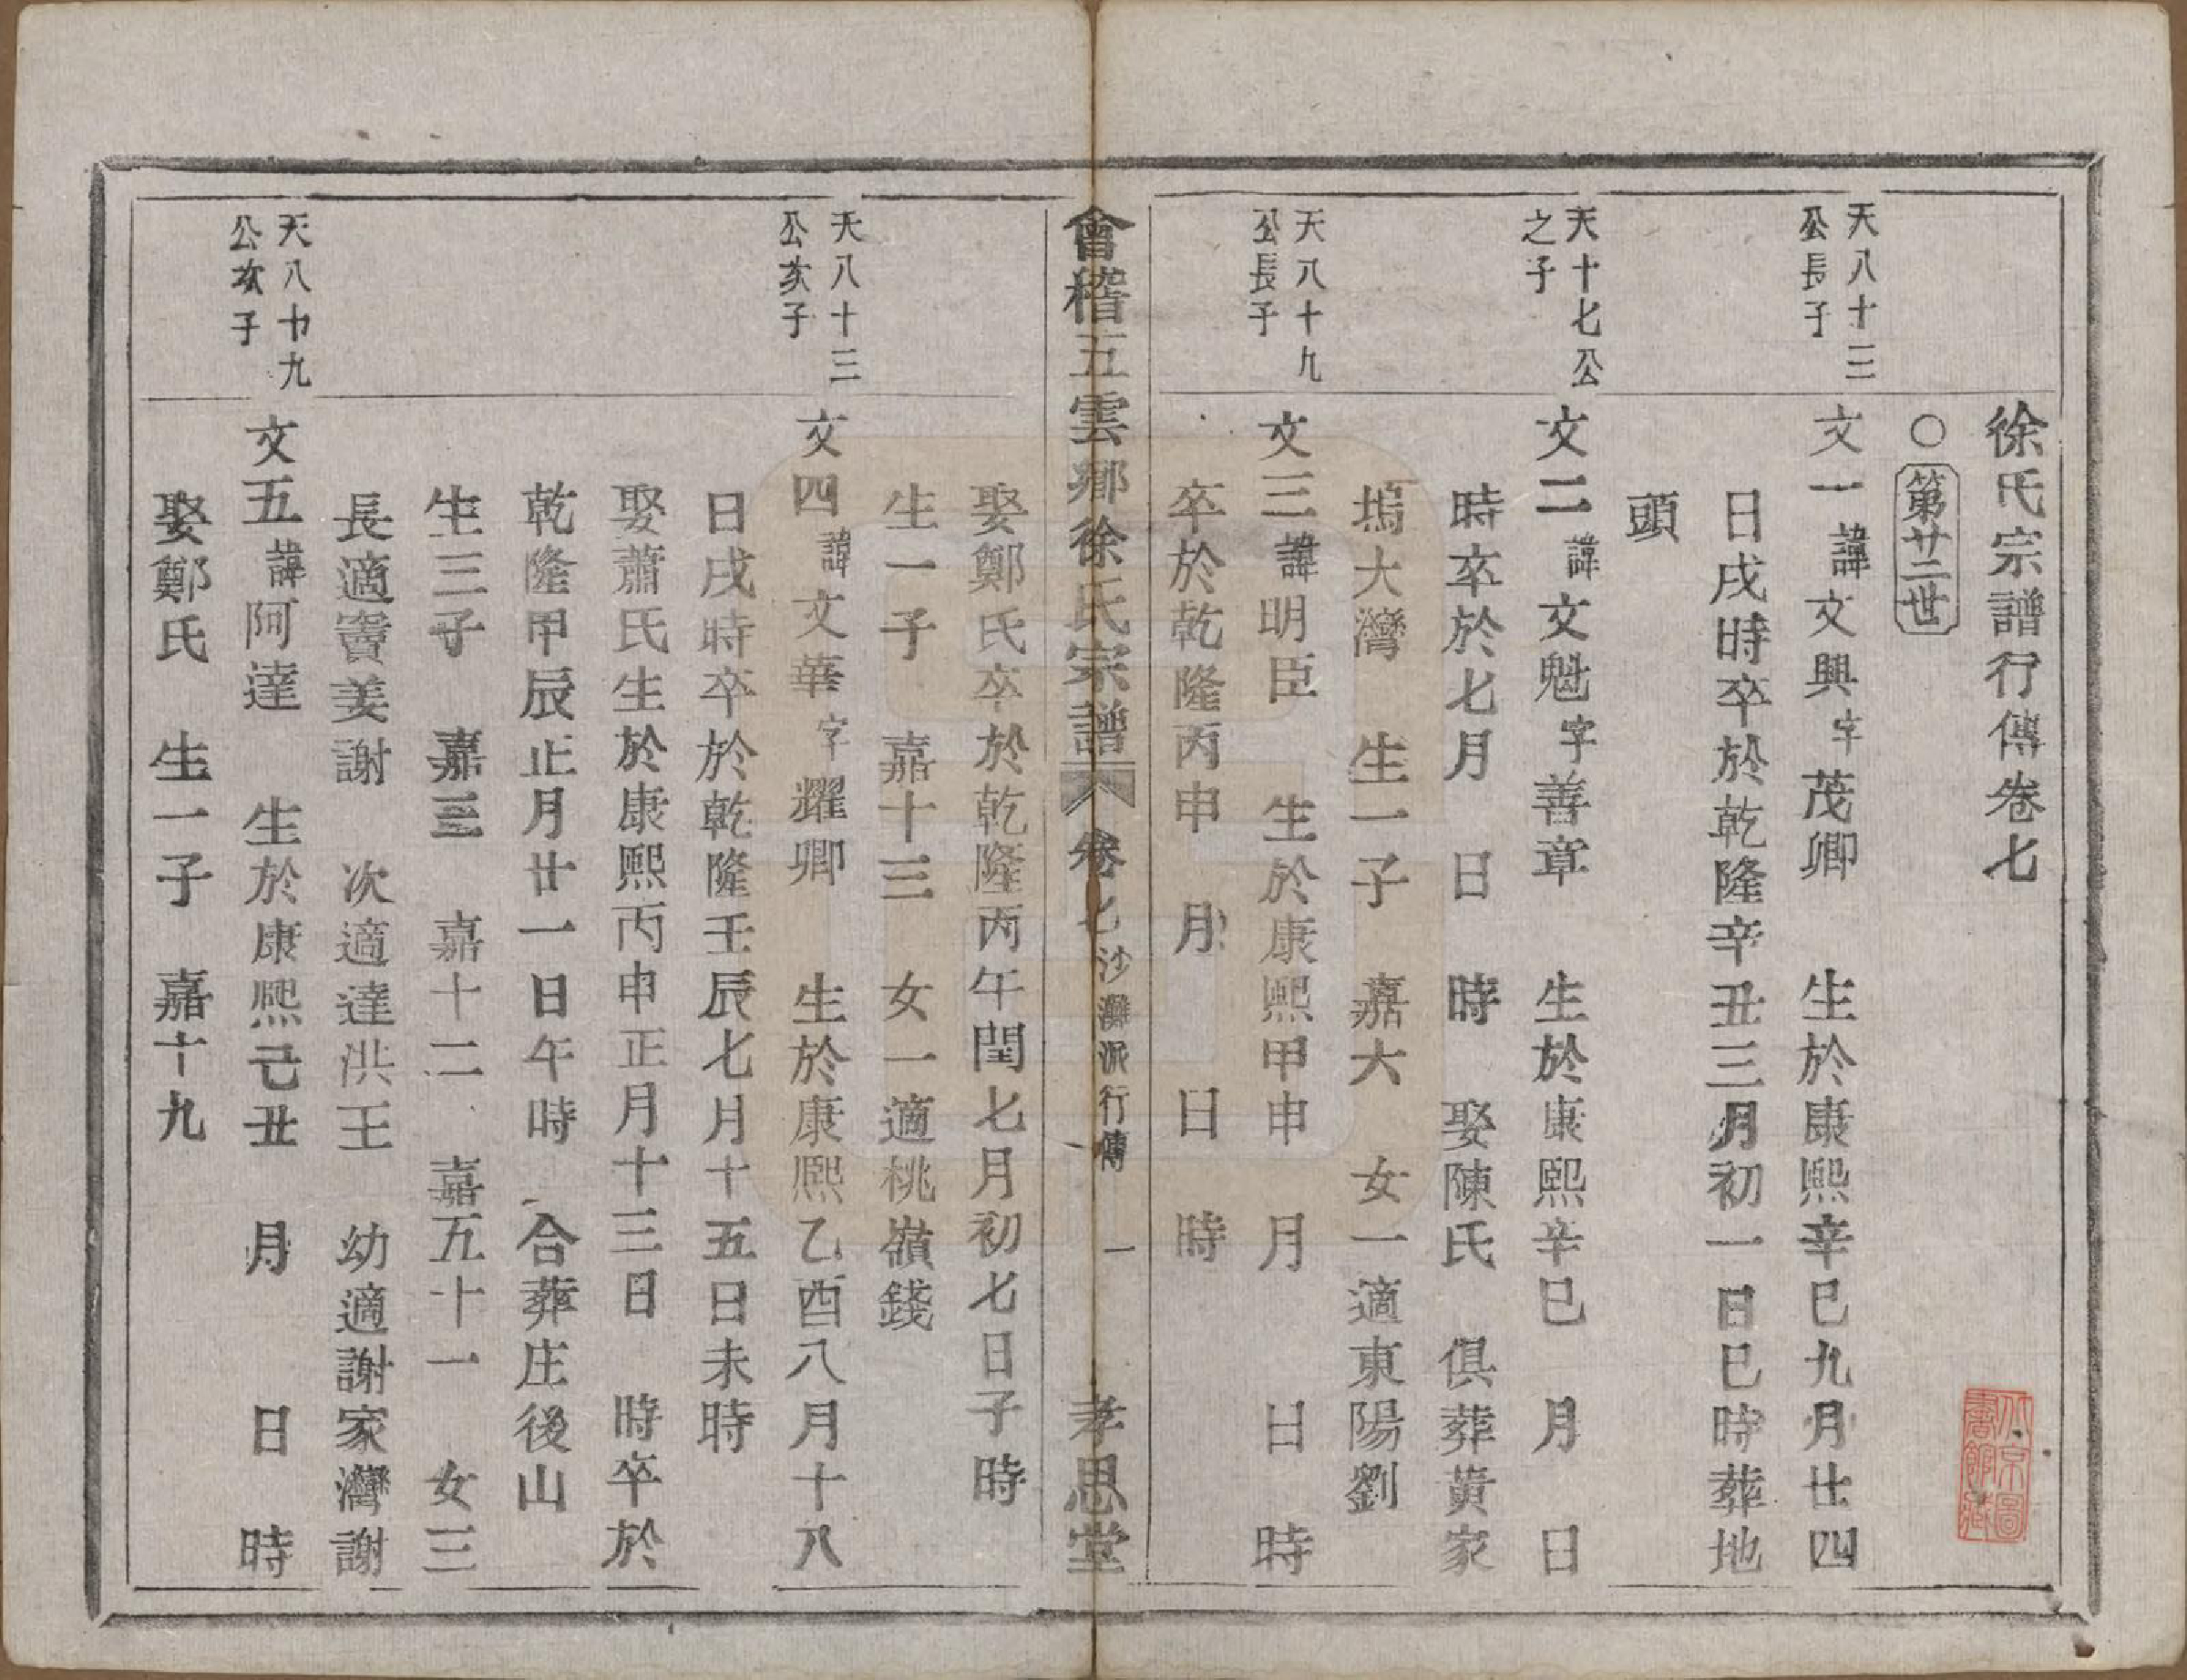 徐氏宗譜行傳卷七
○第廿二世
天八十三公長子
文一諱文興字茂卿　生於康熙辛巳九月廿四
日戌時卒於乾隆辛丑三月初一日巳時葬地
頭
天十七公之子
文二諱文魁字善章　生於康熙辛巳　月　日
時卒於七月　日　時　娶陳氏　俱葬黃家
塢大灣　生一子　嘉六　女一適東陽劉
天八十九公長子
文三諱明臣　生於康熙甲申　月　日　時
卒於乾隆丙申　月　日　時
會稽五雲鄉徐氏宗譜　卷七　沙灘派行傳　一　孝思堂
娶鄭氏卒於乾隆丙午閏七月初七日子時
生一子　嘉十三　女一適桃嶺錢
天八十三公次子
文四諱文華字耀卿　生於康熙乙酉八月十八
日戌時卒於乾隆壬辰七月十五日未時
娶蕭氏生於康熙丙申正月十三日　時卒於
乾隆甲辰正月廿一日午時　合葬庄後山
生三子　嘉三　嘉十二　嘉五十一　女三
長適竇姜謝　次適達洪王　幼適謝家灣謝
天八十九公次子
文五諱阿達　生於康熙己丑　月　日　時
娶鄭氏　生一子　嘉十九